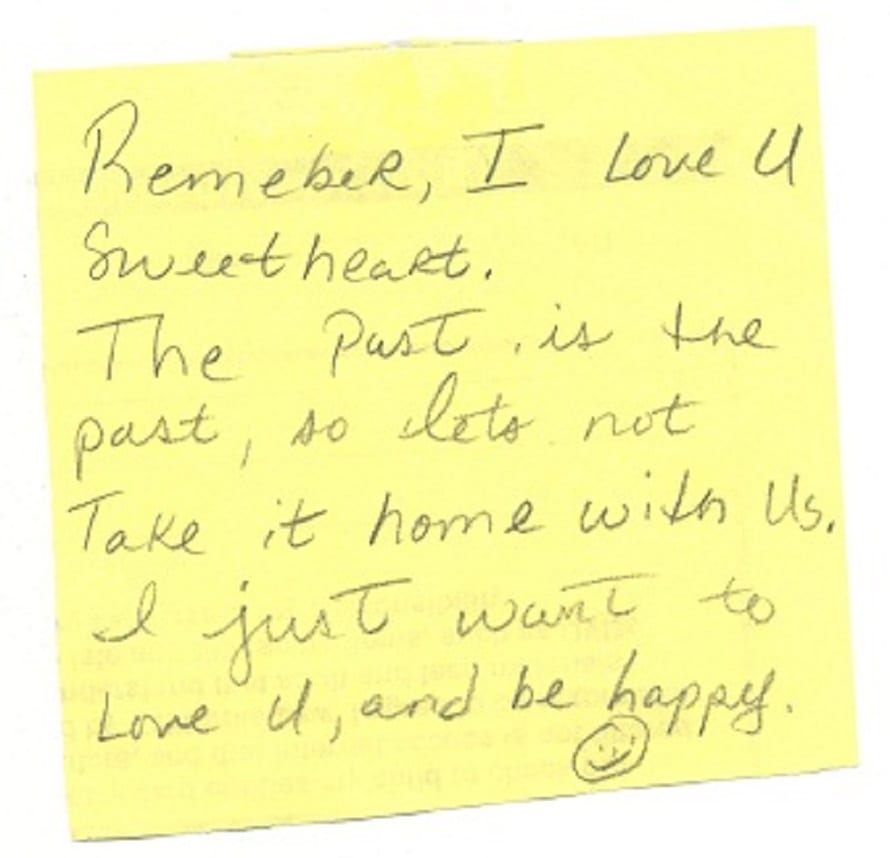 Remeber, I Love U
Sweetheart.
The Past is the
past, so lets not
Take it home with Us.
I just want to
Love U, and be happy.